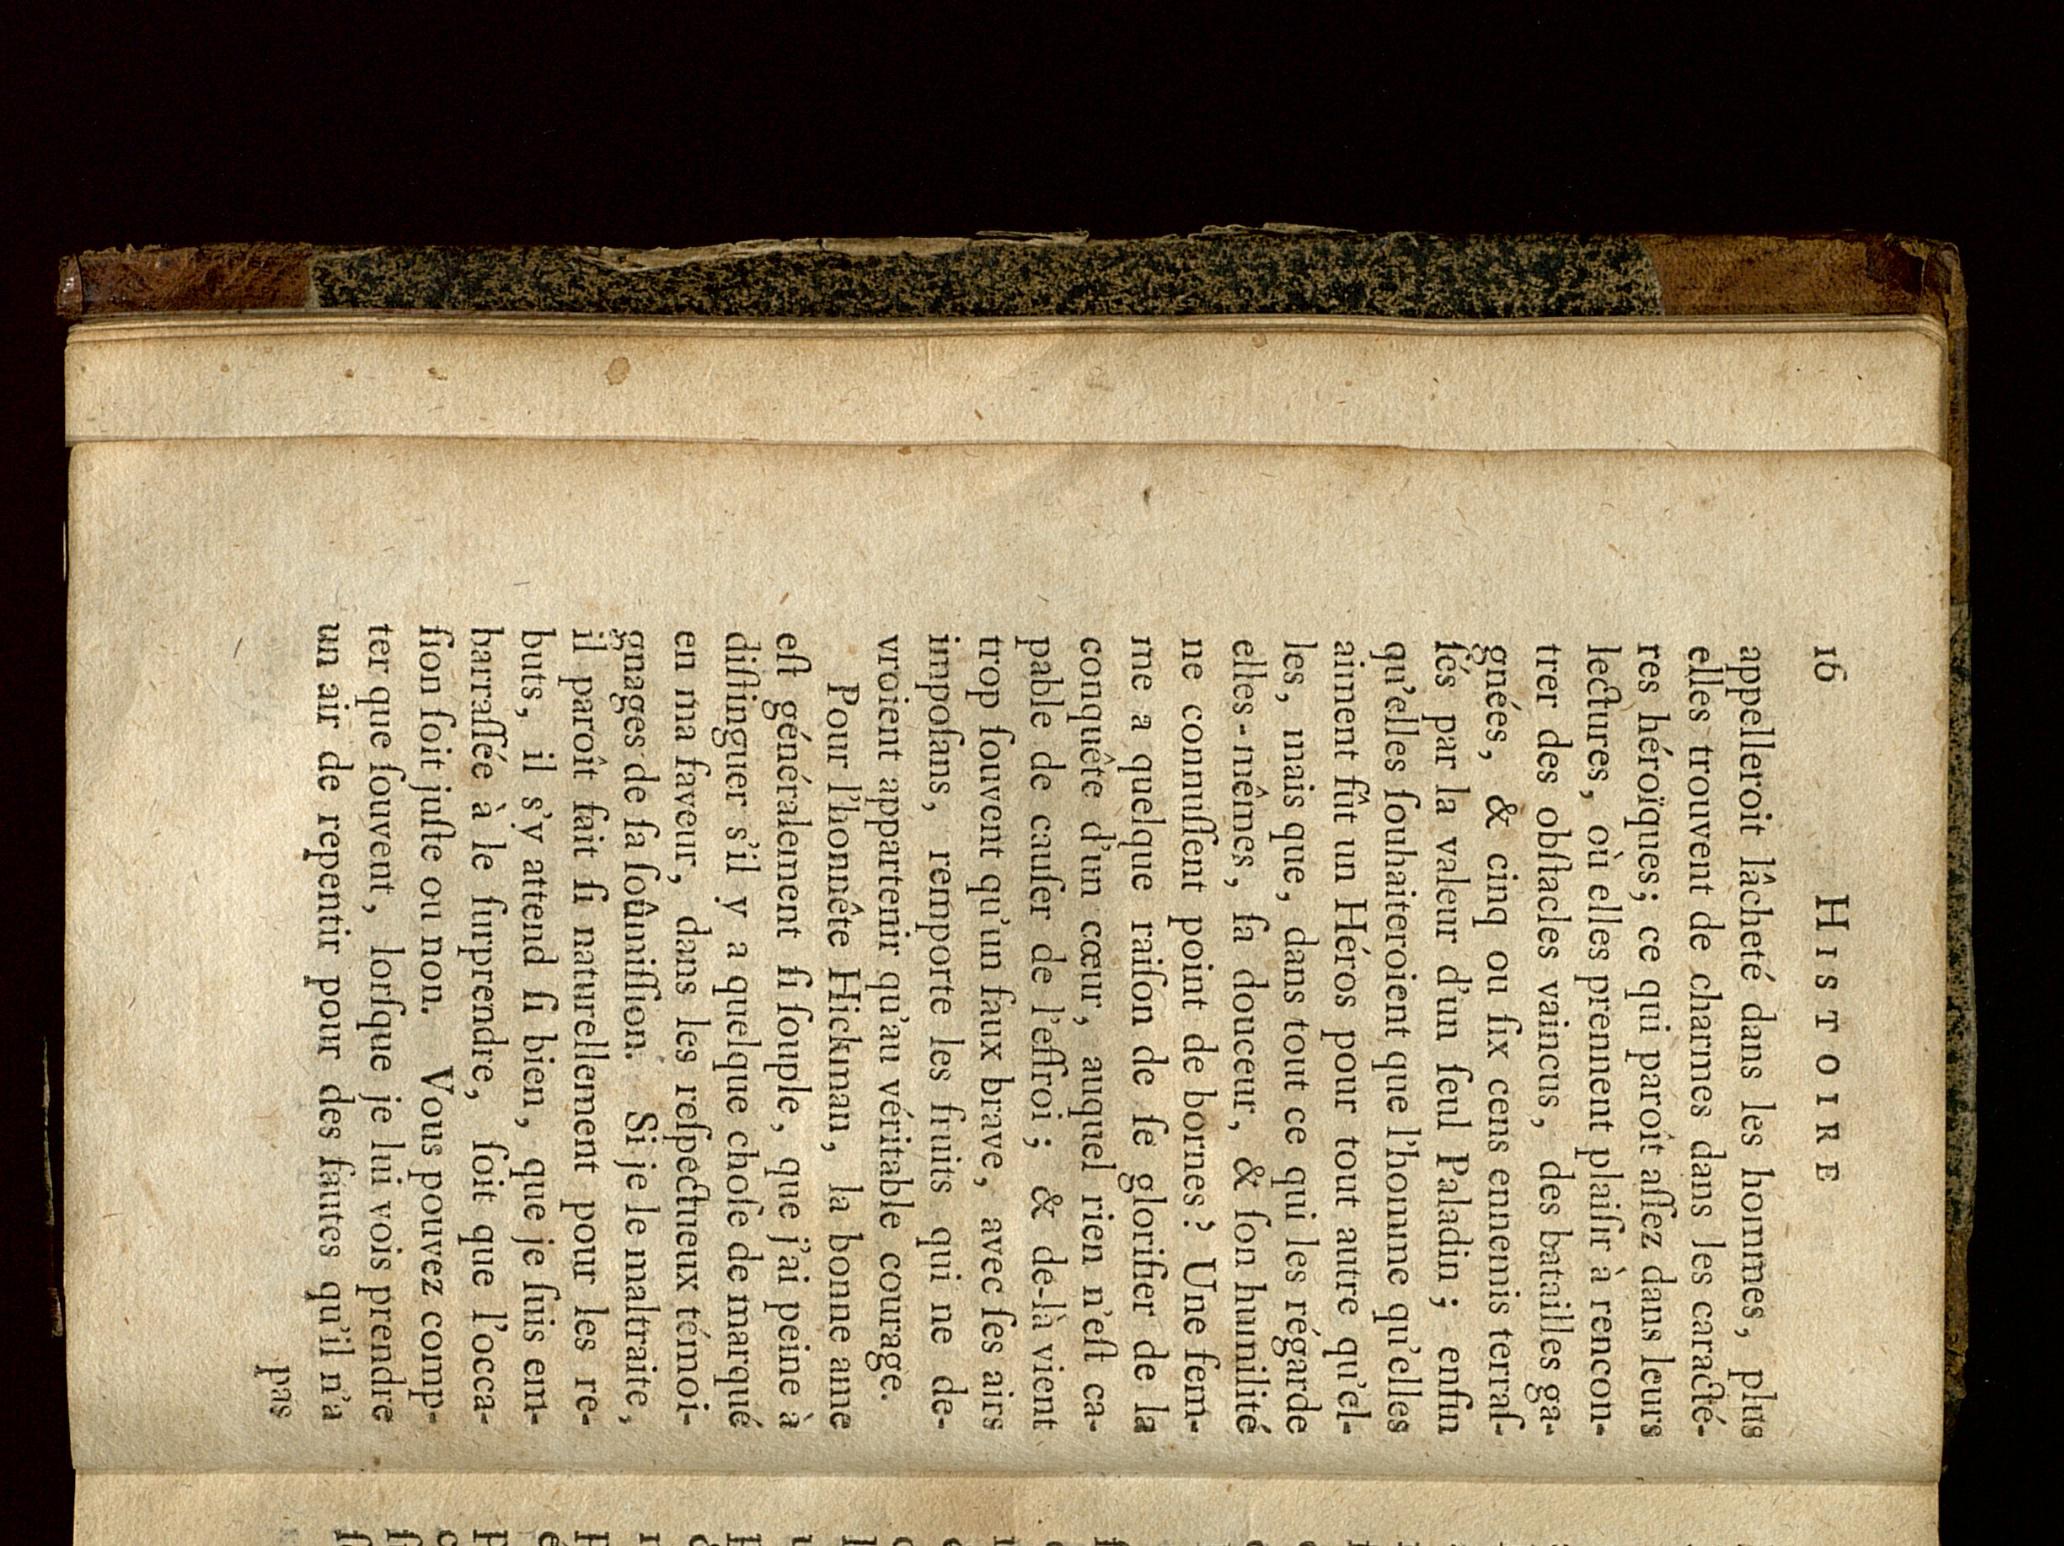 16 HISTOIRE
appelleroit lâcheté dans les hommes, plus
elles trouvent de charmes dans les caracté-
res héroïques; ce qui paroît aſſez dans leurs
lectures, où elles prennent plaiſir à rencon-
trer des obſtacles vaincus, des batailles ga-
gnées, & cinq ou ſix cens ennemis terraſ-
ſés par la valeur d'un ſeul Paladin; enfin
qu'elles ſouhaiteroient que l'homme qu'elles
aiment fût un Héros pour tout autre qu'el-
les, mais que, dans tout ce qui les régarde
elles-mêmes, ſa douceur, & ſon humilité
ne connuſſent point de bornes? Une fem-
me a quelque raiſon de ſe glorifier de la
conquête d'un cœur, auquel rien n'eſt ca-
pable de cauſer de l'effroi; & de-là vient
trop ſouvent qu'un faux brave, avec ſes airs
impoſans, remporte les fruits qui ne de-
vroient appartenir qu'au véritable courage.
Pour l'honnête Hickman, la bonne ame
eſt généralement ſi ſouple, que j'ai peine à
diſtinguer s'il y a quelque choſe de marqué
en ma faveur, dans les reſpectueux témoi-
gnages de ſa ſoûmiſſion. Si je le maltraite,
il paroît fait ſi naturellement pour les re-
buts, il s'y attend ſi bien, que je ſuis em-
barraſſée à le ſurprendre, ſoit que l'occa-
ſion ſoit juſte ou non. Vous pouvez comp-
ter que ſouvent, lorſque je lui vois prendre
un air de repentir pour des fautes qu'il n'a
pas